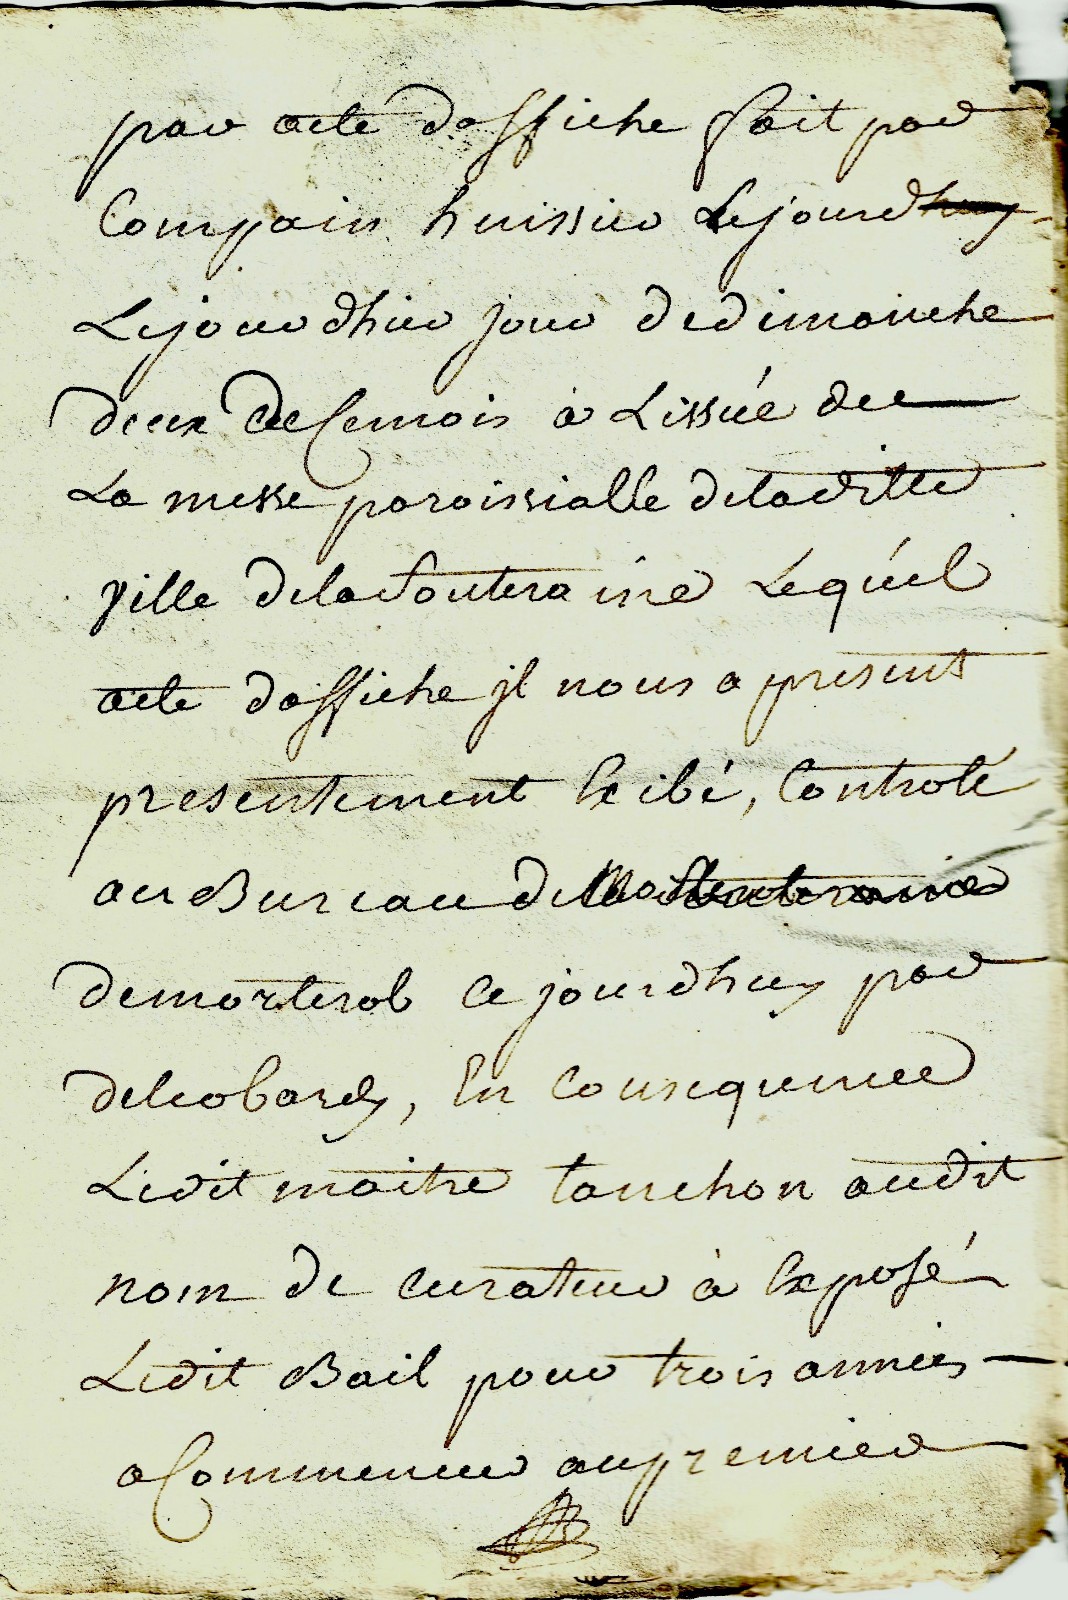 par acte daffiche fait par
Compain huissier Lejourdhuy
Lejour dhier jour dedimanche
deux de Cemois à Lissüe de
La messe paroissialle deladitte
ville delaSouteraine Lequel
acte daffiche jl nous a present
presentement Exibé, Controlé
au Bureau de la Souteraine
demorterob ce jourdhuy par
delcobardy, En Consequence
Ledit maitre tanchon audit
nom de curateur à Exposé
Ledit Bail pour trois années
a Commencer aupremier